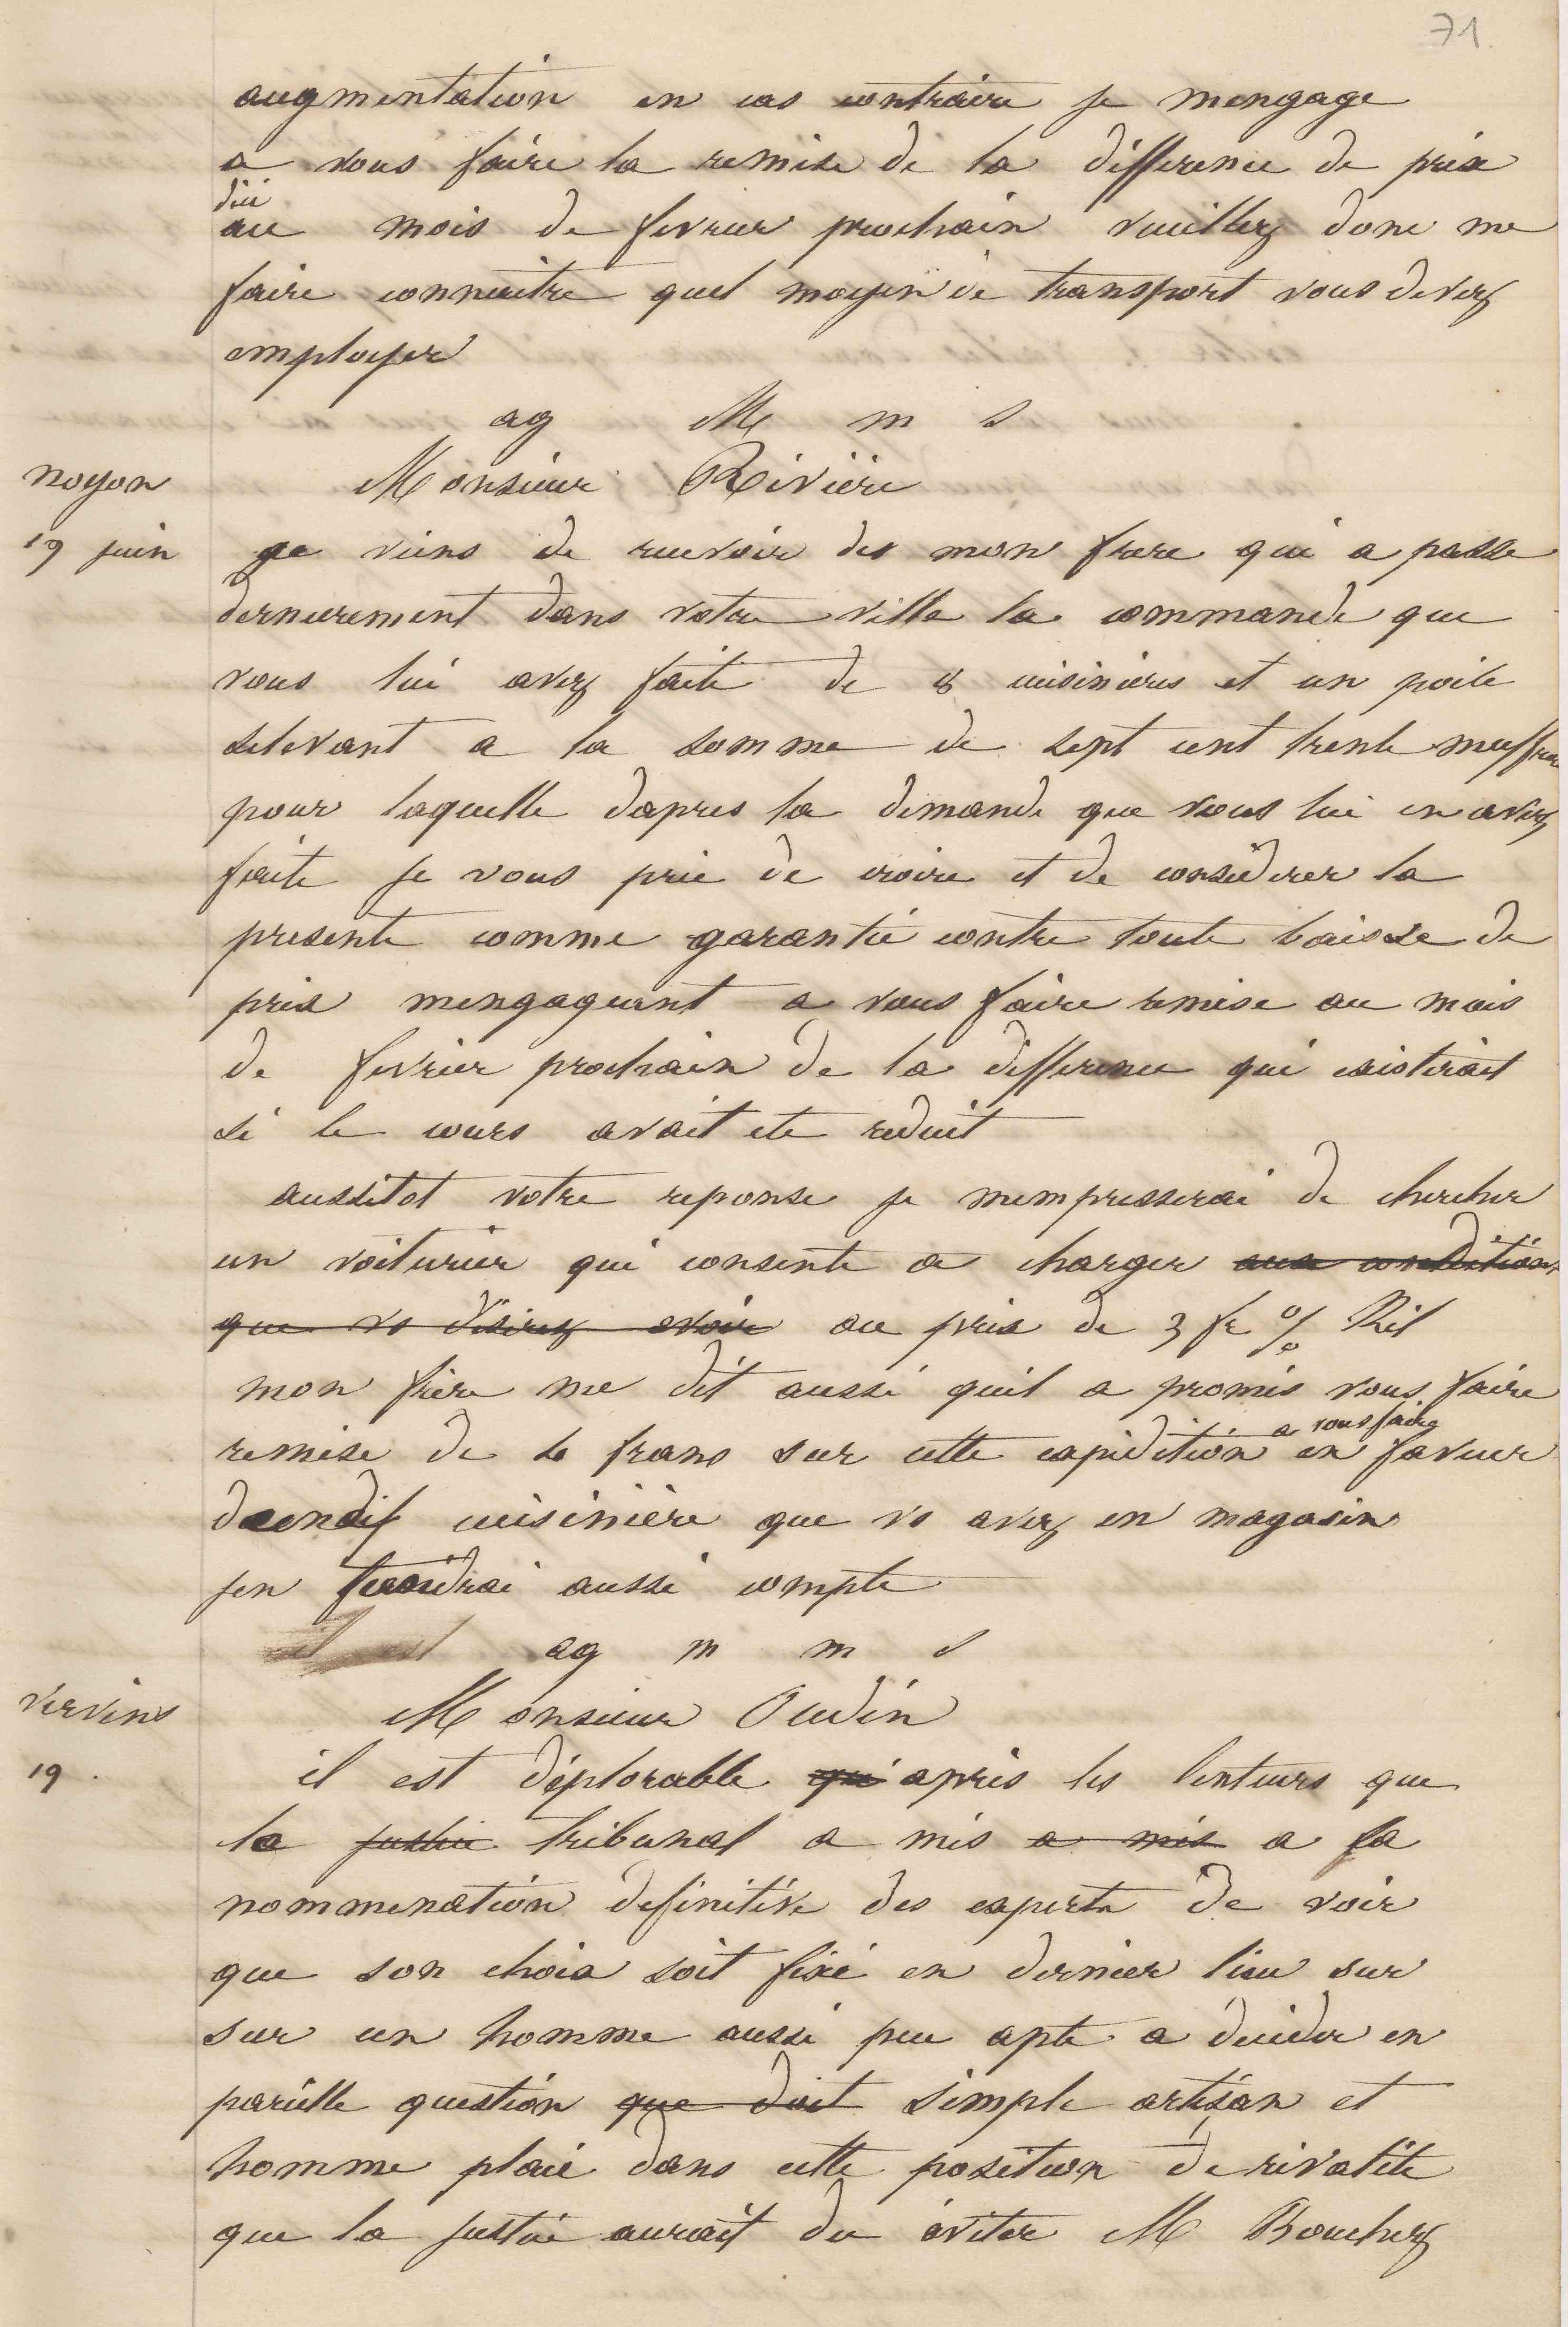 71
augmentation en cas contraire je mengage
a vous faire la remise de la difference de prix
d'ici
au mois de fevrier prochain veuillez donc me
faire connaitre quel moyen de transport vous devez
employer
ag M m s
noyon
Monsieur Rivière
19 juin
je viens de recevoir de mon frere qui a passe
dernierement dans votre ville la commande que
vous lui avez faite de 8 cuisinieres et un poile
selevant a la somme de sept cent trente neuf francs
pour laquelle dapres la demande que vous lui en avez
faite je vous prie de croire et de considerer la
presente comme garantie contre toute baisse de
prix mengageant a vous faire remise au mois
de fevrier prochain de la difference qui existerait
si le cours avait ete reduit
aussitot votre reponse je mempresserai de chercher
un voiturier qui consente a charger aux conditions
que vs desirez avoir au prix de 3 fr % Kil
mon frère me dit aussi quil a promis vous faire
a vous faire
remise de francs sur cette expedition en faveur
cuisinière que vs avez en magasin
jen tiendrai aussi compte
il est ag m m s
vervins
Monsieur Oudin
19
il est déplorable qu apris les lenteurs que
le justice tribunal a mis a mis a la
nommenation definitive des experts de voir
que son choix soit fixé en dernier lieu sur
sur un homme aussi peu apte a decider en
parielle question que doit simple artisan et
homme placé dans cette position de rivalité
que la justice aurait du éviter M Bouchez